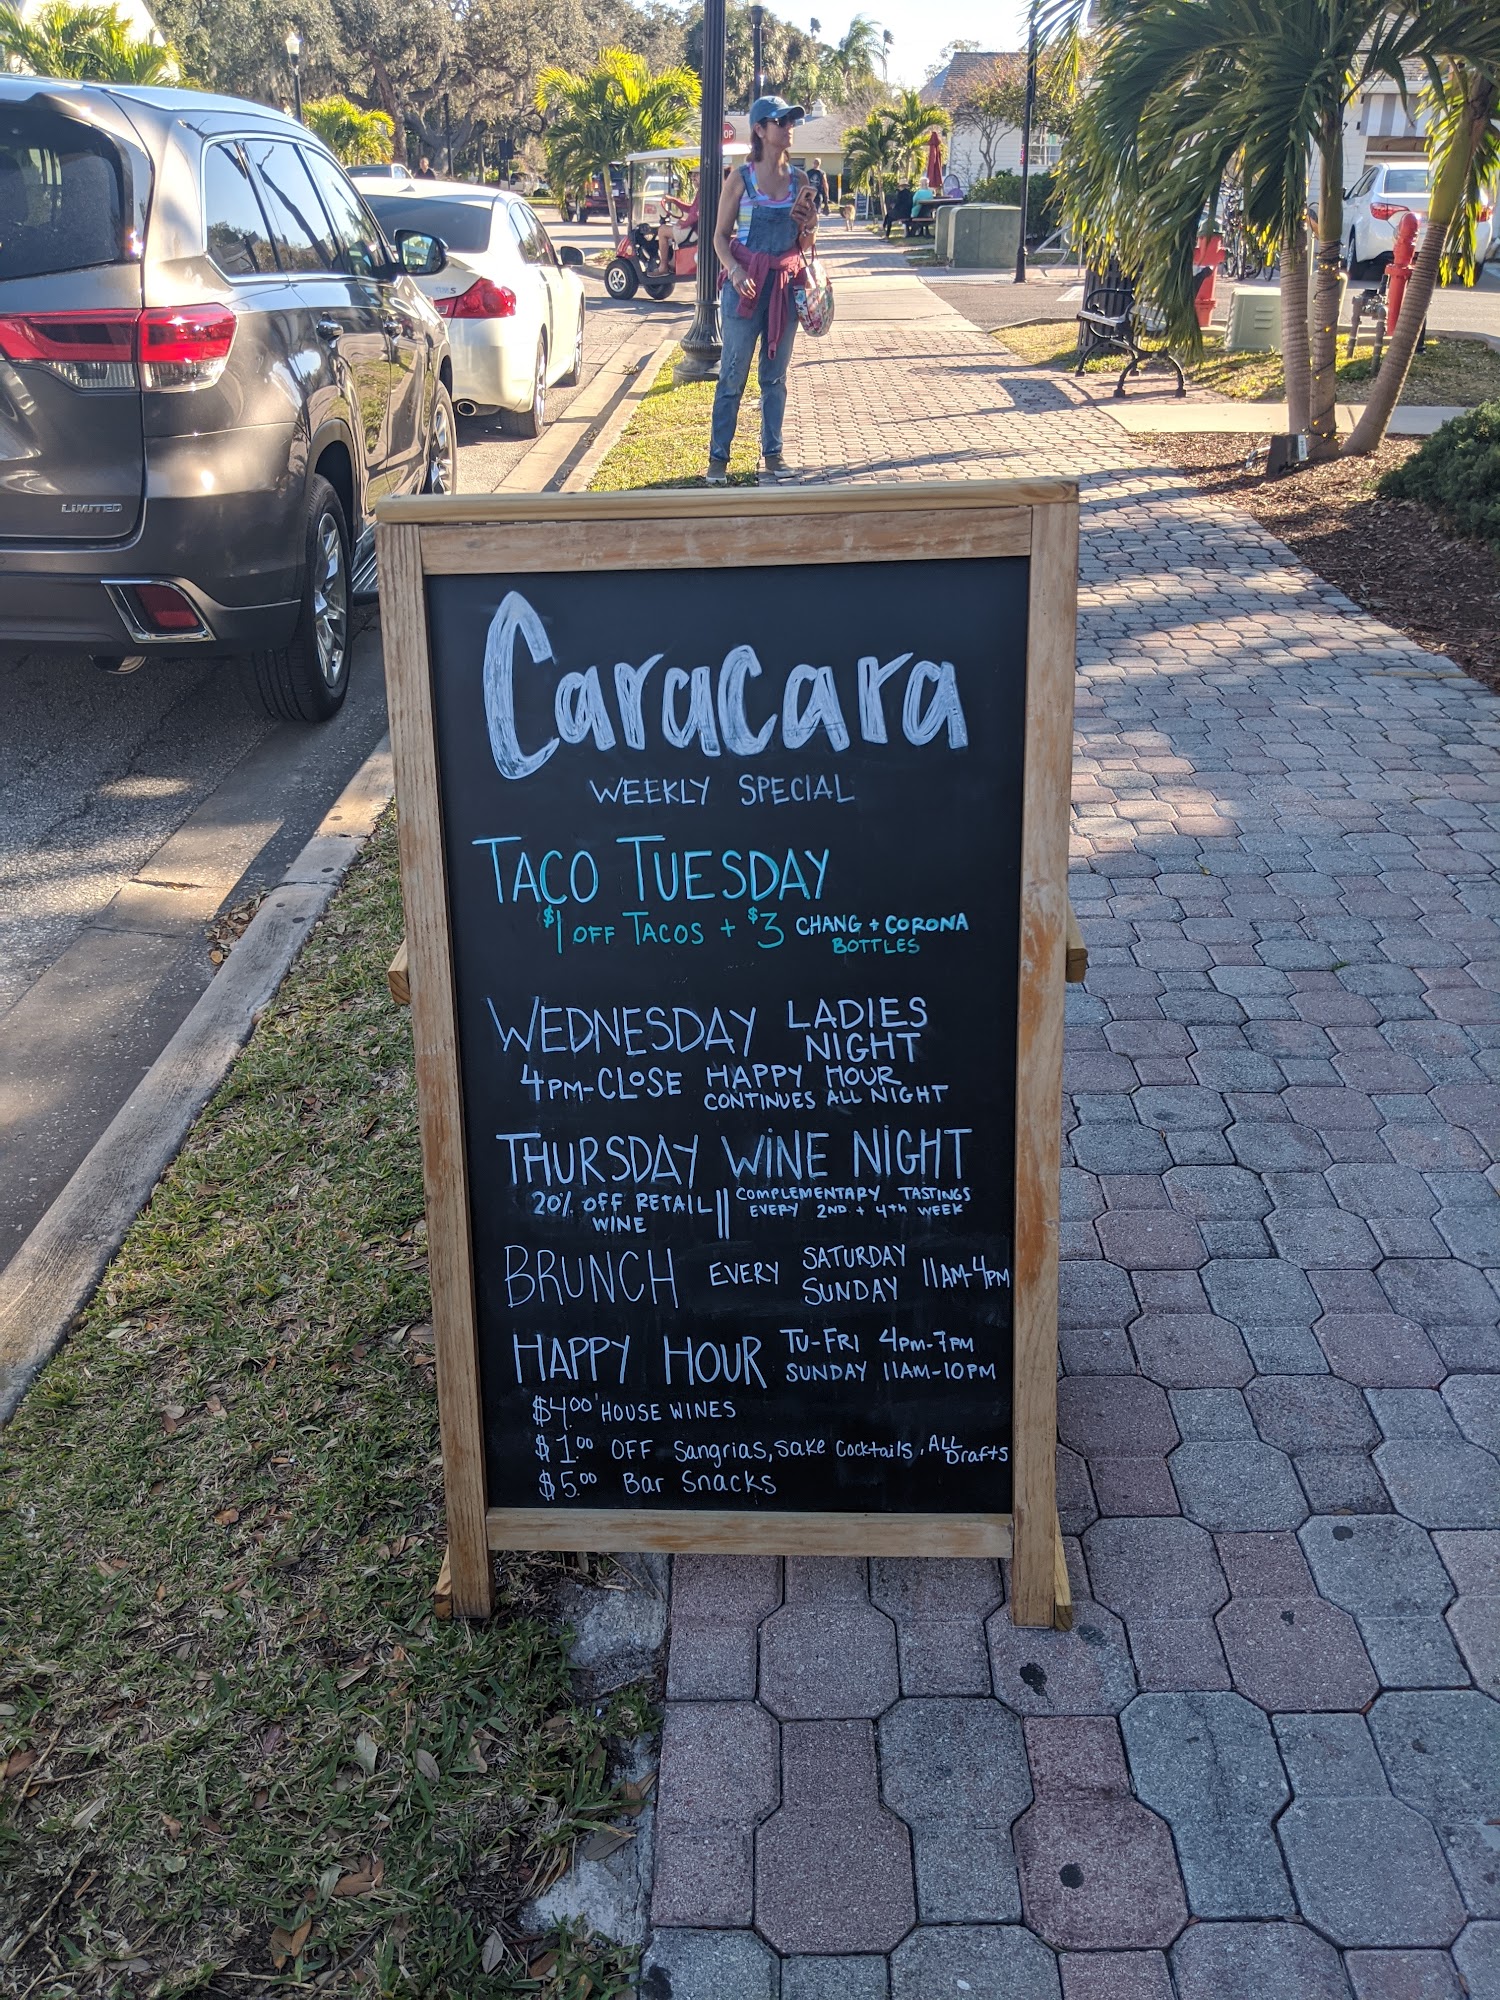 LIMITED
OP
Caracara
WEEKLY SPECIAL
TACO TUESDAY
$1 OFF TACOS + $3 CHANG + CORONA
BOTTLES
WEDNESDAY LADIES
NIGHT
4PM-CLOSE HAPPY HOUR
CONTINUES ALL NIGHT
THURSDAY WINE NIGHT
20% OFF RETAIL || COMPLEMENTARY TASTINGS
WINE EVERY 2ND + 4TH WEEK
BRUNCH EVERY SATURDAY 11AM-4PM
SUNDAY
HAPPY HOUR TU-FRI 4PM-7PM
SUNDAY 11AM-10PM
$4.00 HOUSE WINES
$1.00 OFF Sangrias, Sake Cocktails, ALL Drafts
$5.00 Bar Snacks